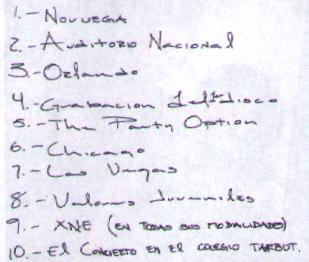 1.- Noruega
2.- Auditorio Nacional
3.- Orlando
4.- Grabacion del Disco
5.- The Party Option
6.- Chicago
7.- Las Vegas
8.- Valores Juveniles
9.- XNE (EN TODAS SUS MODALIDADES)
10.- El Concierto en el colegio TARBUT.